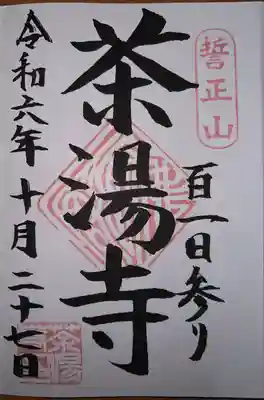 誓正山
百一日参り
茶湯寺
令和六年十月二十七日